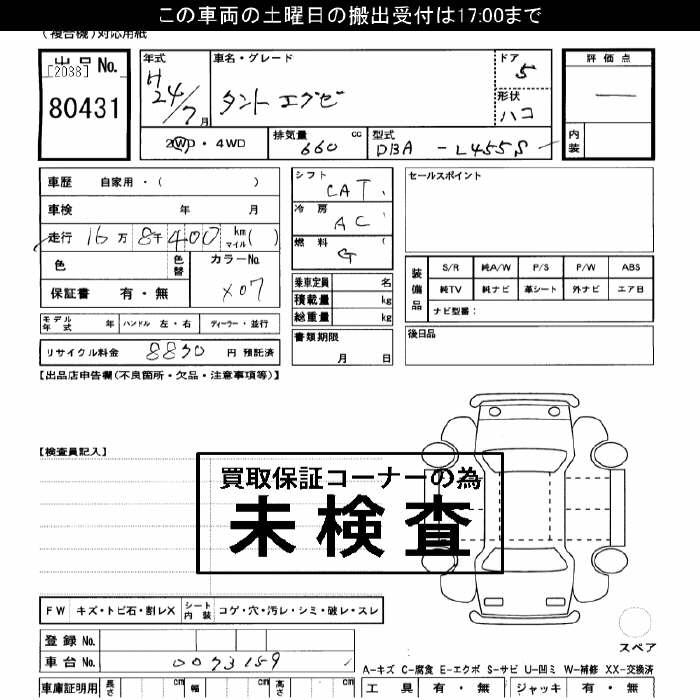 この車両の土曜日の搬出受付は17:00まで
(複合機)対応用紙
出品No.
[2038]
80431
年式
H24/7月
車名・グレード
タント エグゼ
ドア
5
形状
ハコ
評価点
—
内装
2WD・4WD
排気量 660 cc
型式 DBA - L455S
車歴 自家用・( )
車検 年 月
走行 16万8千400 km マイル( )
色
色替
カラーNo.
X07
保証書 有・無
シフト
CAT
冷房
AC
燃料
G
乗車定員 名
積載量 kg
総重量 kg
書類期限
月 日
セールスポイント
装備品
S/R 純A/W P/S P/W ABS
純TV 純ナビ 革シート 外ナビ エア日
ナビ型番:
後日品
モデル年式 年 ハンドル 左・右 ディーラー・並行
リサイクル料金 8830 円 預託済
【出品店申告欄(不良箇所・欠品・注意事項等)】
【検査員記入】
買取保証コーナーの為
未検査
FW キズ・トビ石・割レX シート内装 コゲ・穴・汚レ・シミ・破レ・スレ
登録No.
車台No. 0073159
スペア
A-キズ C-腐食 E-エクボ S-サビ U-凹ミ W-補修 XX-交換済
車庫証明用 長さ cm 幅 cm 高さ cm
工具 有・無 ジャッキ 有・無